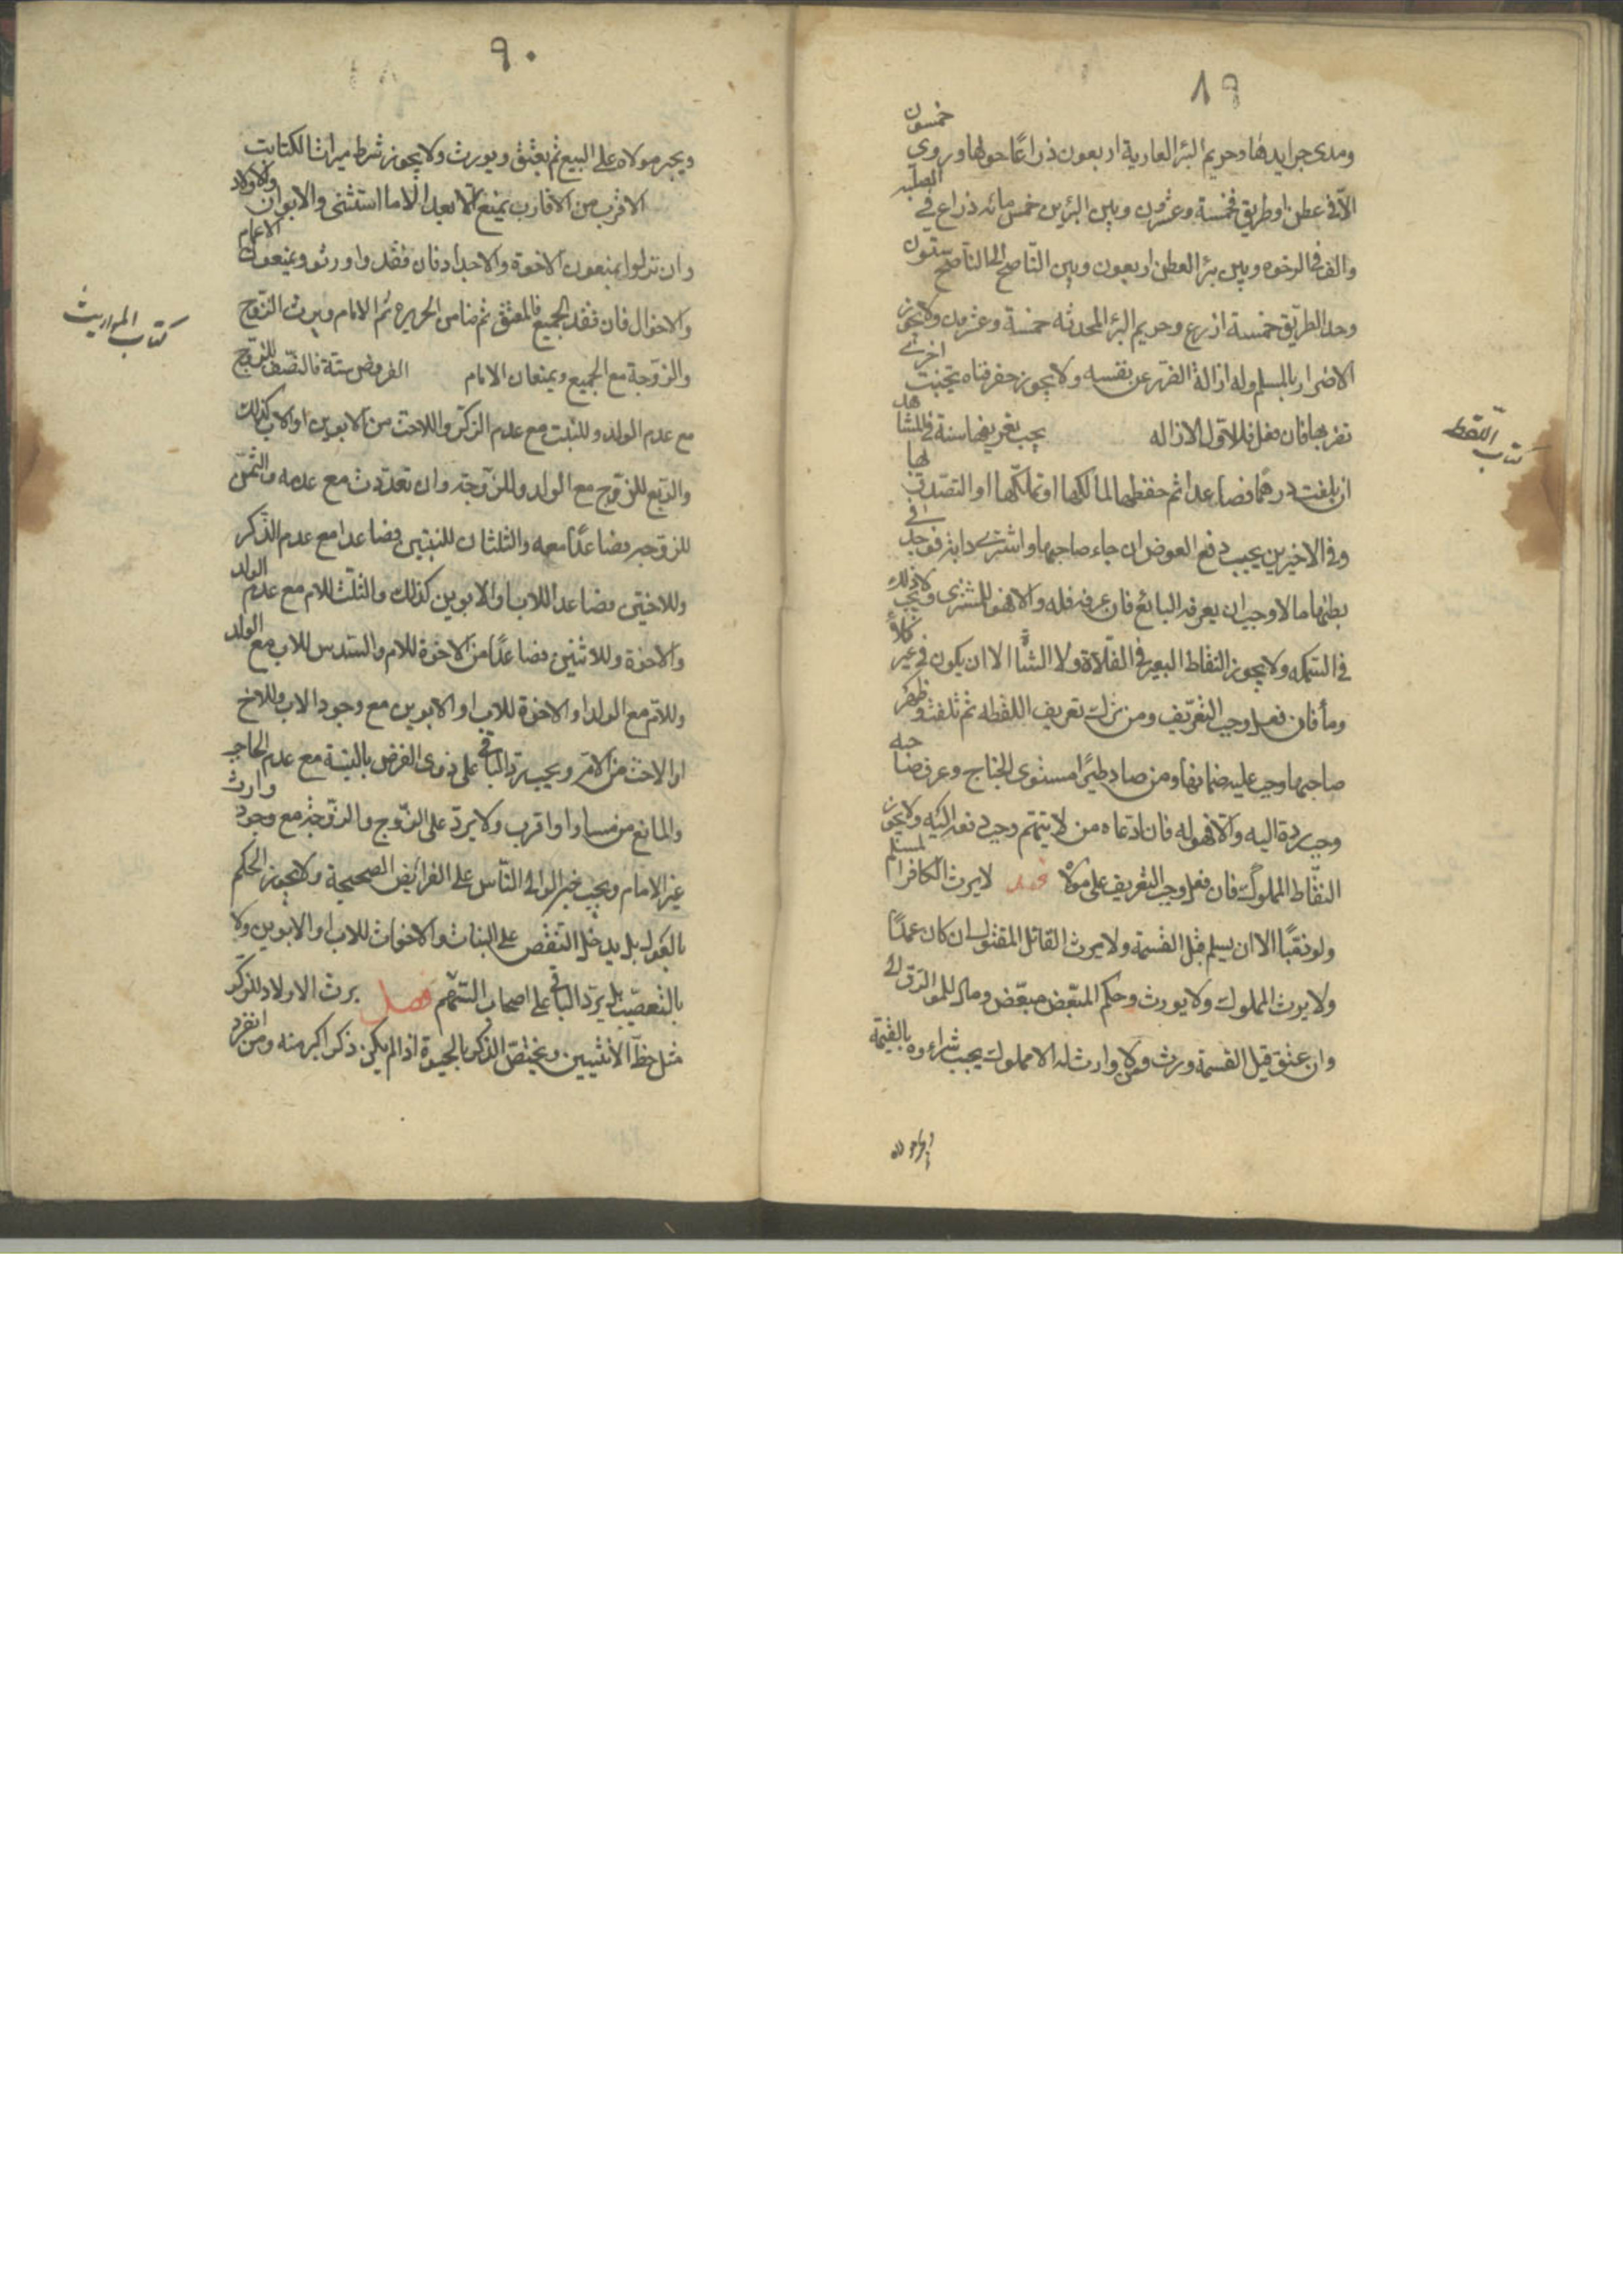 ٨٩
ومدى جرايدها وحريم البئر العادية اربعون ذراعًا حولها وروى خمسون
الّا فى عطن او طريق فخمسة وعشرون وبين البئرين خمس مائه ذراع فى الصلبه
والف فى الرخوه وبين بئر العطن اربعون وبين النّاضح الى الناضح ستون
وحد الطريق خمسة اذرع وحريم البئر المحدثه خمسة وعشرون ولا يجوز
الاضرار بالمسلم وله ازالة الضرر عن نفسه ولا يجوز حفر قناه بجنب اخرى
تضر بها فان فعل فللاول الازاله يجب تعريفها سنة فى المشاهد
كتاب اللّقطه
ان بلغت درهمًا فصاعدا ثم حفظها لمالكها او تملّكها او التصدق بها
وفى الاخيرين يجب دفع العوض ان جاء صاحبها واشترى دابة فوجد فى
بطنها مالا وجب ان يعرفه البائع فان عرفه فله والا فهو للمشترى ولا يجب ذلك
فى السمكه ولا يجوز التقاط البعير فى الفلاة ولا الشاة الا ان يكون فى غير كلأ
وماء فان فعل وجب التعريف ومن ترك تعريف اللقطه ثم تلفت وظهر
صاحبها وجب عليه ضمانها ومن صاد طيرًا مستوى الجناح وعرف صاحبه
وجب ردة اليه والّا فهو له فان ادعاه من لا يتهم وجب دفعه اليه ولا يجوز
التقاط المملوك فان فعل وجب التعريف على مولاه لا يرث الكافر المسلم
ولو ذميًا الا ان يسلم قبل القسمة ولا يرث القاتل المقتول ان كان عمدًا
ولا يرث المملوك ولا يورث وحكم المبعّض مبعّض وماله للمولى
وان عتق قبل القسمة ورث ومن لا وارث له الا مملوك يجب شراءوه بالقيمة
ويجبر مولاه
٩٠
ويجبر مولاه على البيع ثم يعتق ويورث ولا يجوز شرط ميراث المكاتب
الاقرب من الاقارب يمنع الابعد الّا ما استثنى والابوان والاولاد
وان نزلوا يمنعون الاخوة والاجداد فان فقدوا ورثوا ويمنعون الاعمام
والاخوال فان فقد الجميع فالمعتق ثم ضامن الجريره ثم الامام ويرث الزّوج
كتاب المواريث
والزّوجة مع الجميع ويمنعان الامام الفروض ستّة فالنصف للزوج
مع عدم الولد وللبنت مع عدم الذكر وللاخت من الابوين او الاب كذلك
والربع للزوج مع الولد وللزوجة وان تعددت مع عدمه والثمن
للزوجة فصاعدًا معه والثلثان للبنتين فصاعدا مع عدم الذّكر
وللاختين فصاعدا للاب او الابوين كذلك والثلث للام مع عدم الولد
والاخوة وللاثنين فصاعدًا من الاخوة للام والسّدس للاب مع الولد
وللام مع الولد او الاخوة للاب او الابوين مع وجود الاب وللاخ
او الاخت من الام ويجب ردّ الباقى على ذوى الفرض بالنسبة مع عدم الحاجب
والمانع من مساو او اقرب ولا يردّ على الزّوج والزّوجة مع وجود وارث
غير الامام ويجب جبر الوالى النّاس على الفرائض الصحيحة ولا يجوز الحكم
بالعول بل يدخل النقص على البنات والاخوات للاب او الابوين ولا
بالتعصيب بل يردّ الباقى على اصحاب السّهام فصل يرث الاولاد للذكر
مثل حظّ الانثيين ويختصّ الذكر بالحبوة اذا لم يكن ذكر اكبر منه ومن انفرد